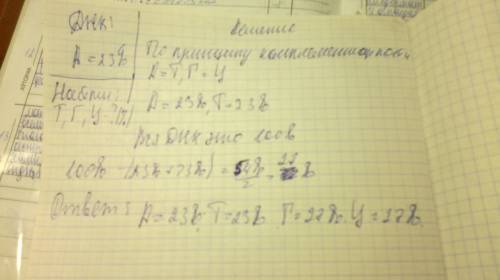 Днк:
А = 23%
Найти:
Т, Г, Ц - ? (%)
Решение
По принципу
А = Т, Г = Ц
А = 23%, Т = 23%
Вся ДНК это 100%
100% - (23% + 23%) = 54%/2 = 27%
Ответ: А = 23%, Т = 23% Г = 27%. Ц = 27%.